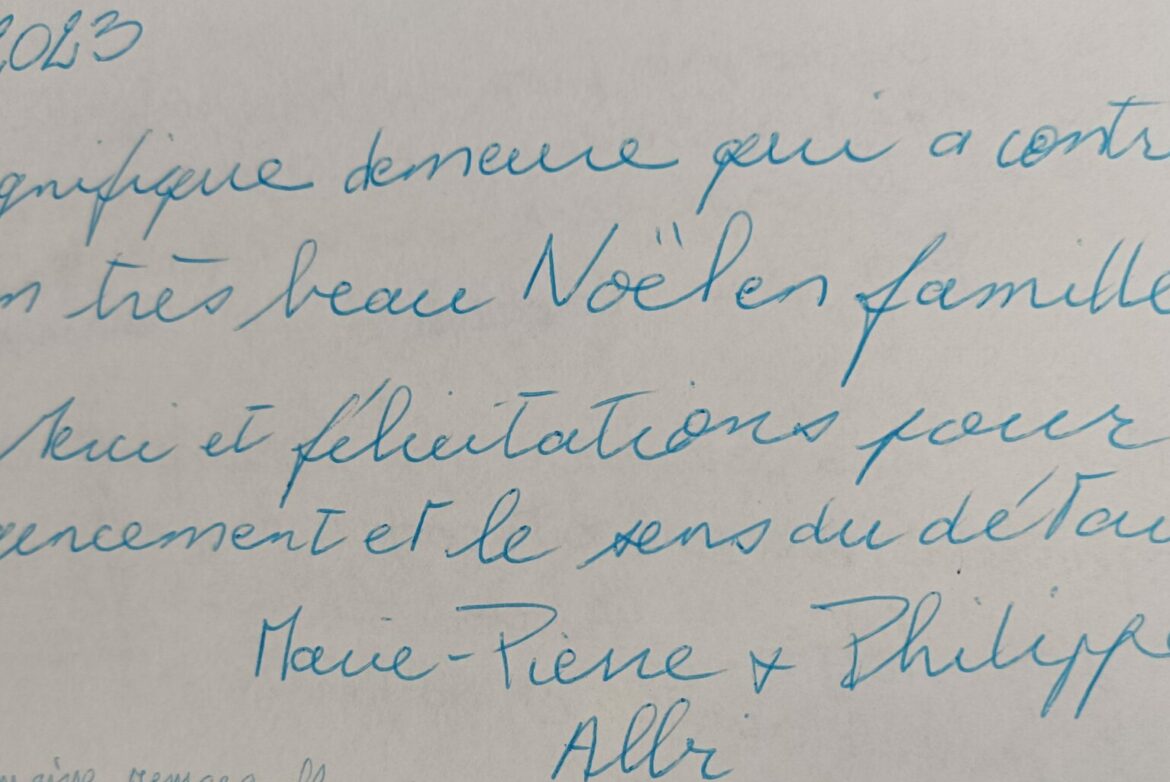 2023
gnifique demeure qui a contr
n très beau Noël en famille
Merci et félicitations pour
encement et le sens du détai
Marie-Pierre & Philippe